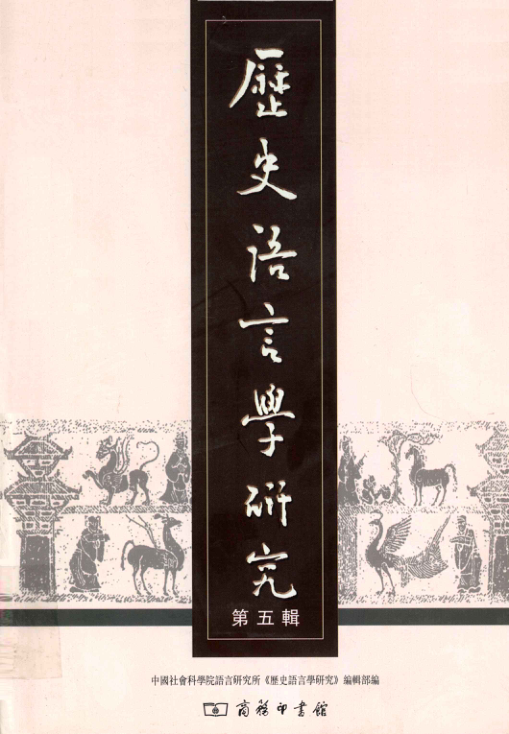 歷史語言學研究
第五輯
中國社會科學院語言研究所《歷史語言學研究》編輯部編
商務印書館